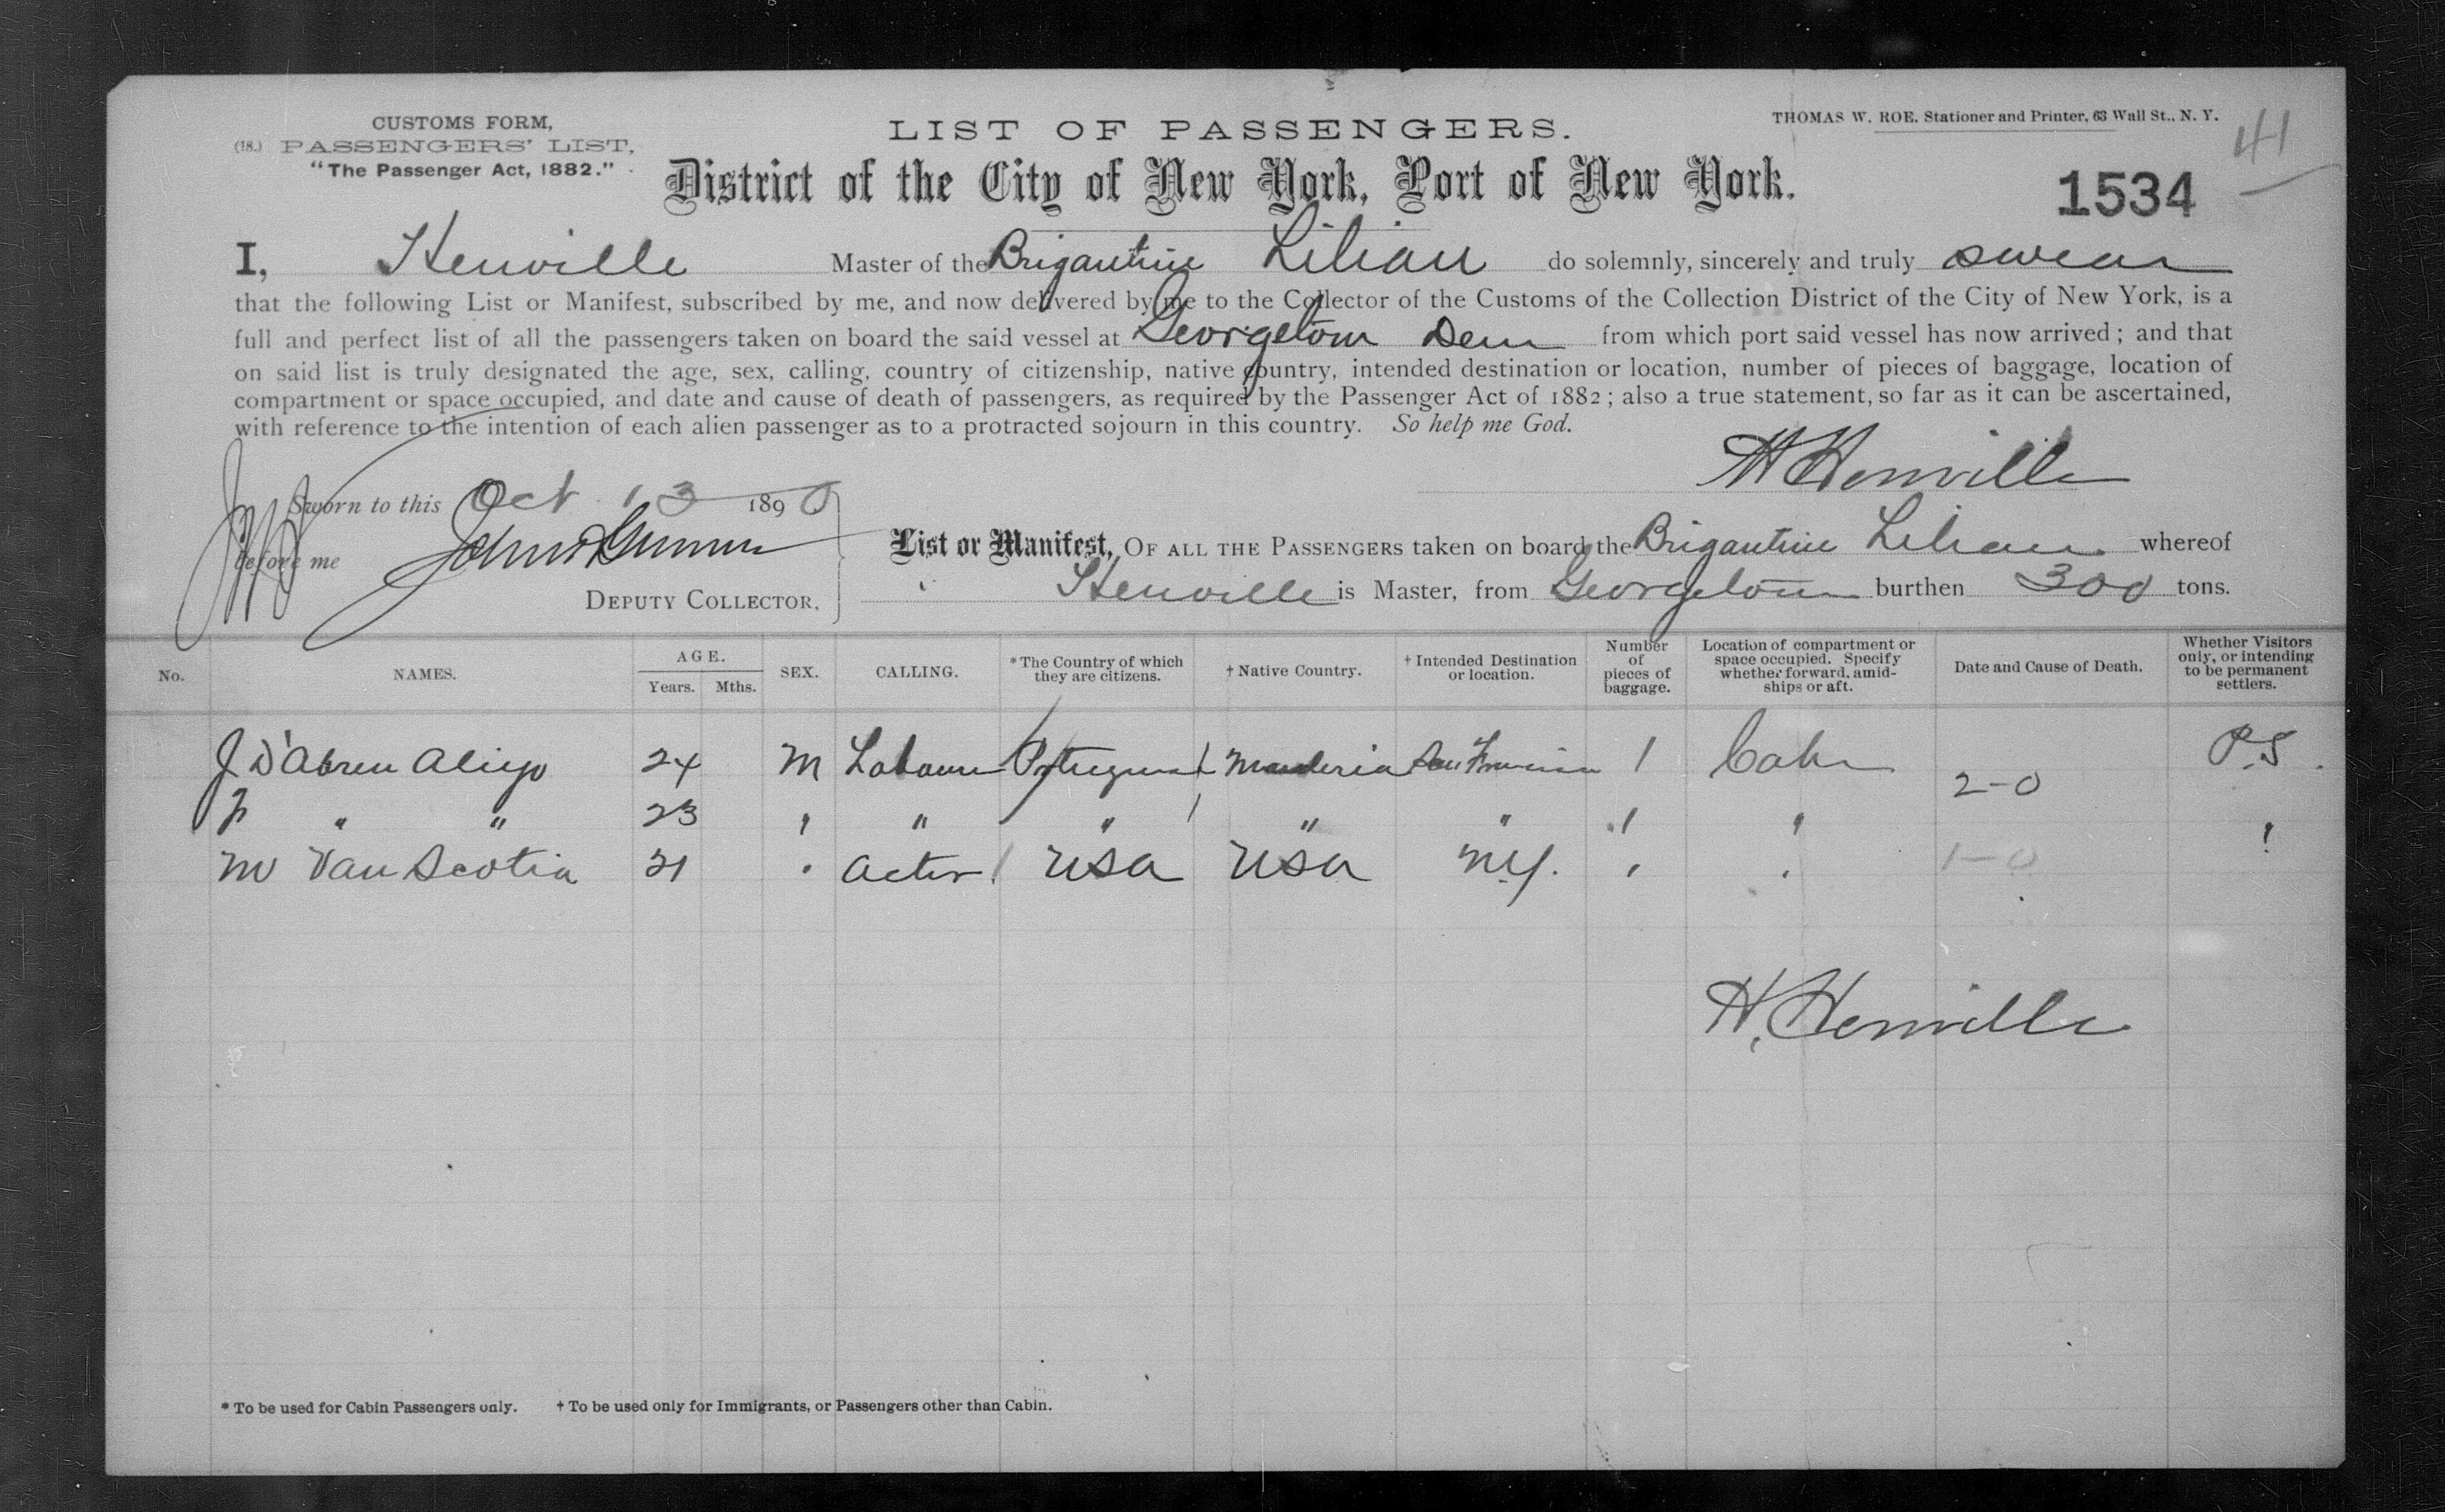 CUSTOMS FORM,
(18.) PASSENGERS' LIST,
"The Passenger Act, 1882."
LIST OF PASSENGERS.
THOMAS W. ROE. Stationer and Printer, 63 Wall St., N. Y.
41
District of the City of New York, Port of New York.
1534
I, Henville Master of the Brigantine Lilian do solemnly, sincerely and truly swear
that the following List or Manifest, subscribed by me, and now delivered by me to the Collector of the Customs of the Collection District of the City of New York, is a
full and perfect list of all the passengers taken on board the said vessel at Georgetown Dem from which port said vessel has now arrived; and that
on said list is truly designated the age, sex, calling, country of citizenship, native country, intended destination or location, number of pieces of baggage, location of
compartment or space occupied, and date and cause of death of passengers, as required by the Passenger Act of 1882; also a true statement, so far as it can be ascertained,
with reference to the intention of each alien passenger as to a protracted sojourn in this country. So help me God.
H Henville
Sworn to this Oct 13 1890
before me
DEPUTY COLLECTOR.
List or Manifest, OF ALL THE PASSENGERS taken on board the Brigantine Lilian whereof
Henville is Master, from Georgetown burthen 300 tons.
No. NAMES. AGE. Years. Mths. SEX. CALLING. *The Country of which they are citizens. † Native Country. † Intended Destination or location. Number of pieces of baggage. Location of compartment or space occupied. Specify whether forward, amidships or aft. Date and Cause of Death. Whether Visitors only, or intending to be permanent settlers.
J D'Abreu 24 M San Francisco 1 P.S.
" " 23 " " " " " 1 " 2-0
M Van Scotia 21 " actor USA USA NY. " " 1-0 "
H. Henville
* To be used for Cabin Passengers only. † To be used only for Immigrants, or Passengers other than Cabin.